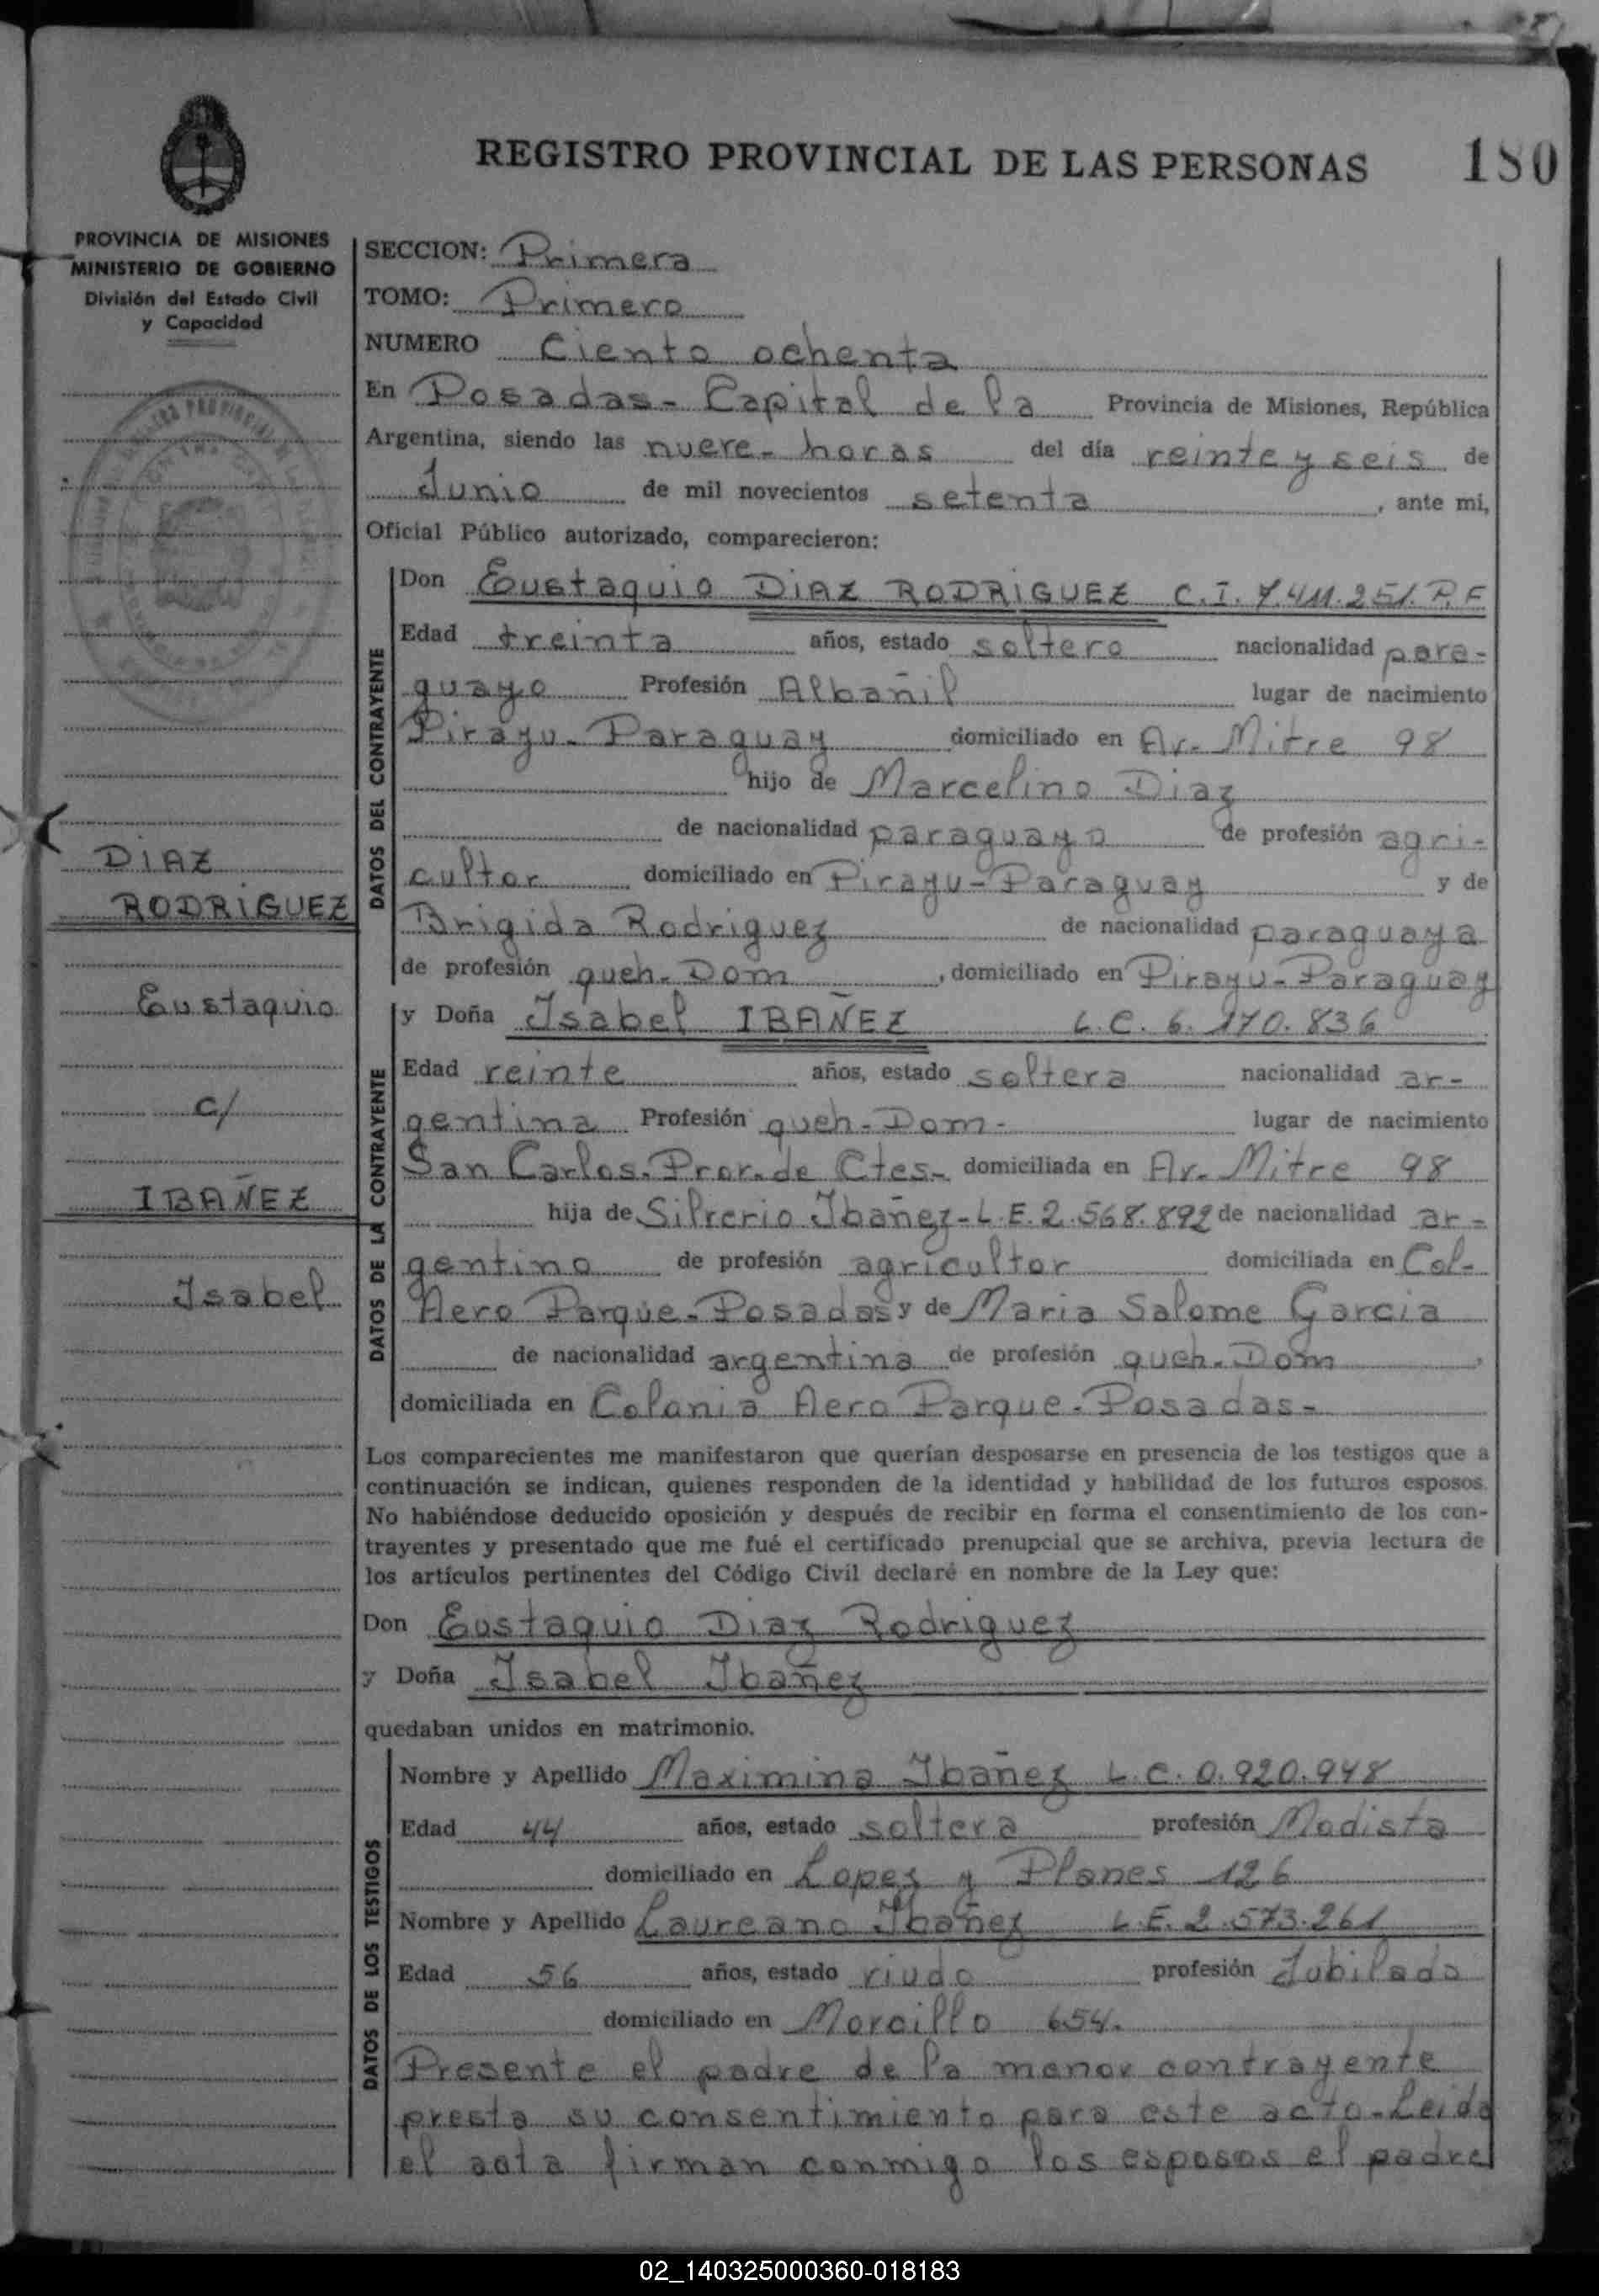 REGISTRO PROVINCIAL DE LAS PERSONAS 180
PROVINCIA DE MISIONES
MINISTERIO DE GOBIERNO
División del Estado Civil
y Capacidad
DIAZ
RODRIGUEZ
Eustaquio
c/
IBAÑEZ
Isabel
SECCION: Primera
TOMO: Primero
NUMERO Ciento ochenta
En Posadas - Capital de la Provincia de Misiones, República
Argentina, siendo las nueve - horas del día veinte y seis de
Junio de mil novecientos setenta, ante mi,
Oficial Público autorizado, comparecieron:
DATOS DEL CONTRAYENTE
Don Eustaquio DIAZ RODRIGUEZ C.I. 7.411.251. P.F
Edad treinta años, estado soltero nacionalidad para-
guayo Profesión Albañil lugar de nacimiento
Pirayu - Paraguay domiciliado en Av. Mitre 98
hijo de Marcelino Diaz
de nacionalidad paraguayo de profesión agri-
cultor domiciliado en Pirayu - Paraguay y de
Brigida Rodriguez de nacionalidad paraguaya
de profesión queh. Dom, domiciliado en Pirayu - Paraguay
DATOS DE LA CONTRAYENTE
y Doña Isabel IBAÑEZ L.C. 6.170.836
Edad veinte años, estado soltera nacionalidad ar-
gentina Profesión queh. Dom- lugar de nacimiento
San Carlos. Prov. de Ctes- domiciliada en Av. Mitre 98
hija de Silverio Ibañez - L.E. 2.568.892 de nacionalidad ar-
gentino de profesión agricultor domiciliada en Col-
Aero Parque - Posadas y de Maria Salome Garcia
de nacionalidad argentina de profesión queh. Dom,
domiciliada en Colonia Aero Parque - Posadas-
Los comparecientes me manifestaron que querían desposarse en presencia de los testigos que a
continuación se indican, quienes responden de la identidad y habilidad de los futuros esposos.
No habiéndose deducido oposición y después de recibir en forma el consentimiento de los con-
trayentes y presentado que me fué el certificado prenupcial que se archiva, previa lectura de
los artículos pertinentes del Código Civil declaré en nombre de la Ley que:
Don Eustaquio Diaz Rodriguez
y Doña Isabel Ibañez
quedaban unidos en matrimonio.
DATOS DE LOS TESTIGOS
Nombre y Apellido Maximina Ibañez L.C. 0.920.948
Edad 44 años, estado soltera profesión Modista
domiciliado en Lopez y Planes 126
Nombre y Apellido Laureano Ibañez L.E. 2.573.261
Edad 56 años, estado viudo profesión Jubilado
domiciliado en Morcillo 654.
Presente el padre de la menor contrayente
presta su consentimiento para este acto - Leida
el acta firman conmigo los esposos el padre
02_140325000360-018183